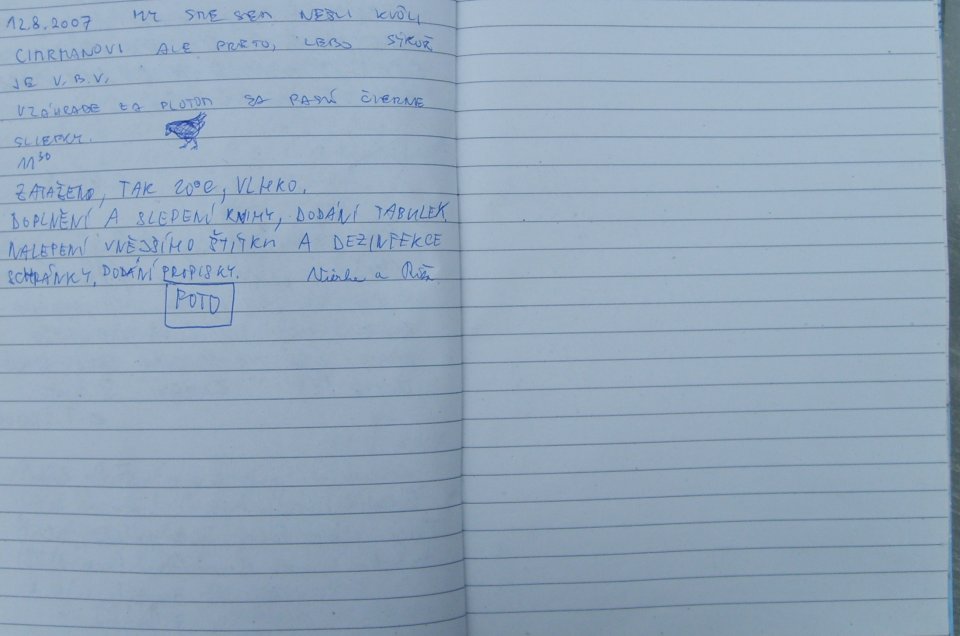 12.8.2007 MY SME SEM NEŠLI KVÔLI
CIMRMANOVI ALE PRETO, LEBO SÝKOŘ
JE V. B. V.
V ZÁHRADE ZA PLOTOM SA PASÚ ČIERNE
SLIEPKY.
11³⁰
ZATAŽENO, TAK 20°C, VLHKO.
DOPLNĚNÍ A SLEPENÍ KNIHY, DODÁNÍ TABULEK,
NALEPENÍ VNĚJŠÍHO ŠTÍTKU A DEZINFEKCE
SCHRÁNKY, DODÁNÍ PROPISKY. a
FOTO